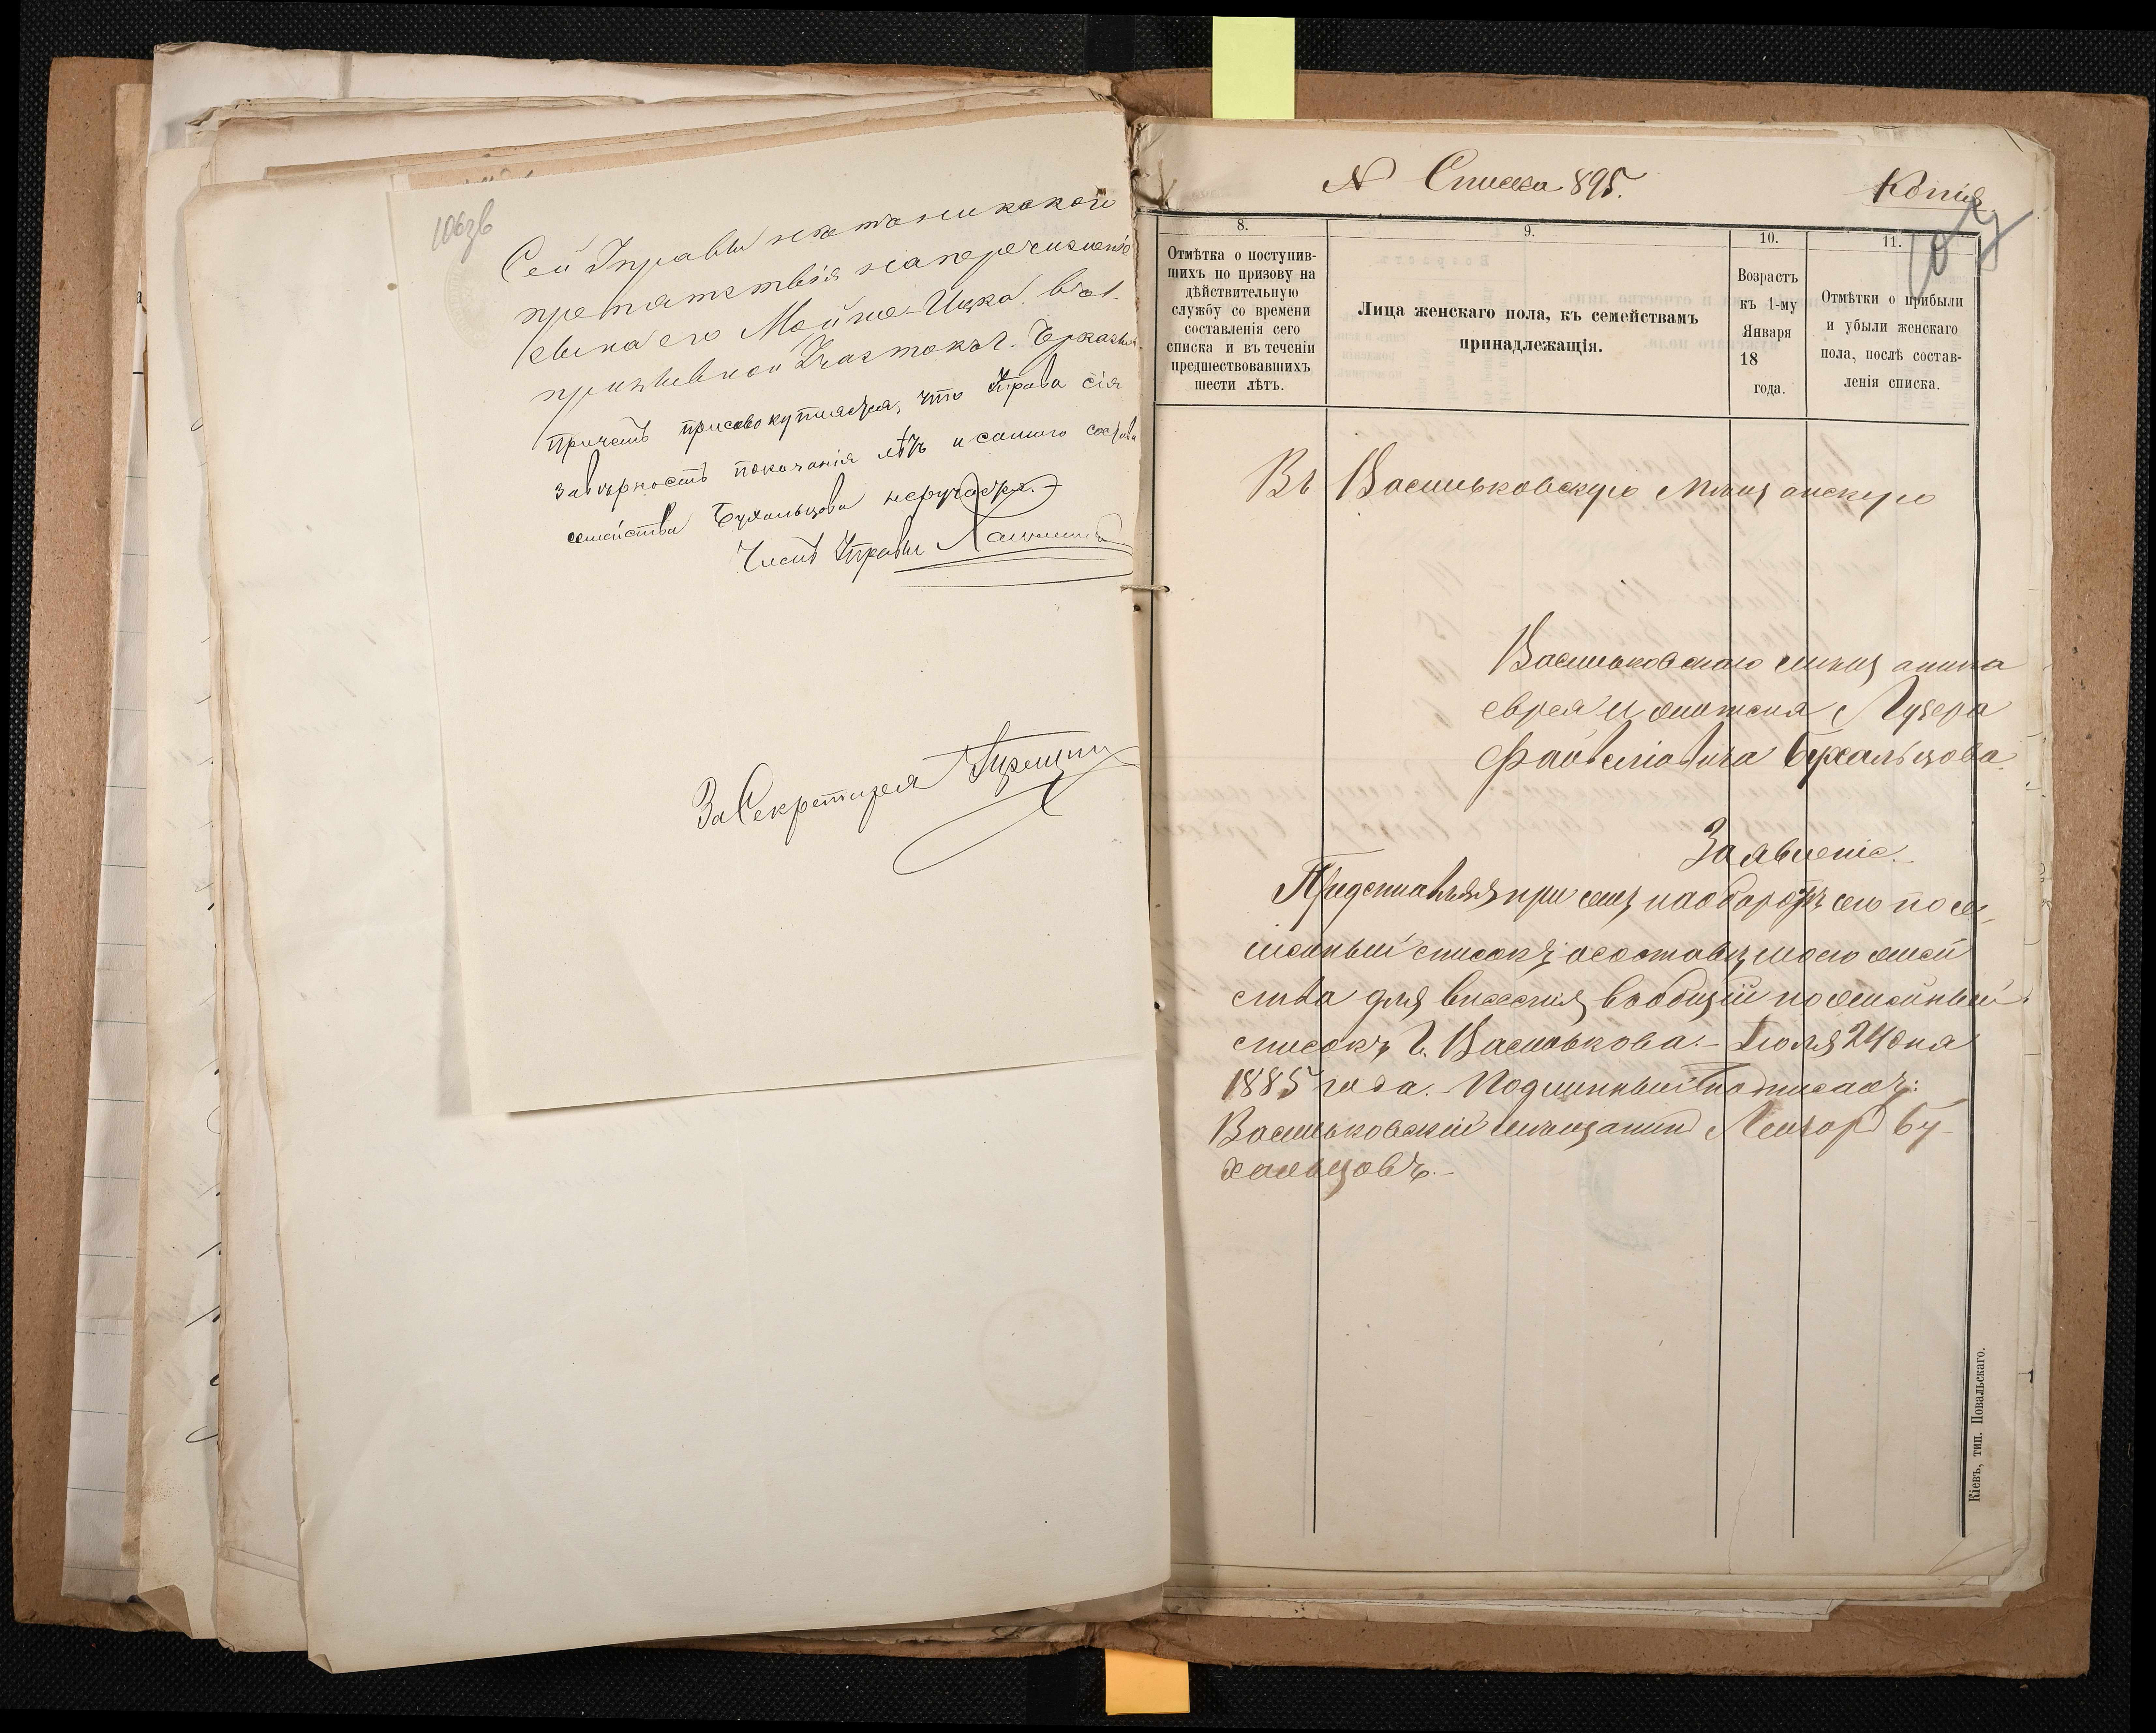 106зв
Сей Управы нѣтъ никакой
препятствія на перечисленіе
сына его Мойше-Ицка въ 1.
призывной Участокъ г. Черкасы
Причемъ присовокупляется, что Управа сія
за вѣрность показанія лѣтъ и самого состава
семейства Бухальцова неручается.-
Членъ Управы
За Секретаря
N Списка 895.
Копія.
107
8.
9.
10.
11.
Отмѣтка о поступив-
шихъ по призову на
дѣйствительную
службу со времени
составленія сего
списка и въ теченіи
предшествовавшихъ
шести лѣтъ.
Лица женскаго пола, къ семействамъ
принадлежащія.
Возрастъ
къ 1-му
Января
18
года.
Отмѣтки о прибыли
и убыли женскаго
пола, послѣ состав-
ленія списка.
Въ Васильковскую Мѣщанскую
Васильковского мѣщанина
еврея Лузера
Файвелювича Бухальцова.
Заявленіе.
Представляя при семъ на оборотѣ сего посе-
мейный списокъ о составѣ моего семей
ства для внесенія въ общій посемейный
списокъ г. Василькова.- Іюля 24 дня
1885 года.- Подлинный подписалъ:
Васильковскій мѣщанинъ Лейзоръ Бу-
хальцовъ.-
Кіевъ, тип. Повальскаго.